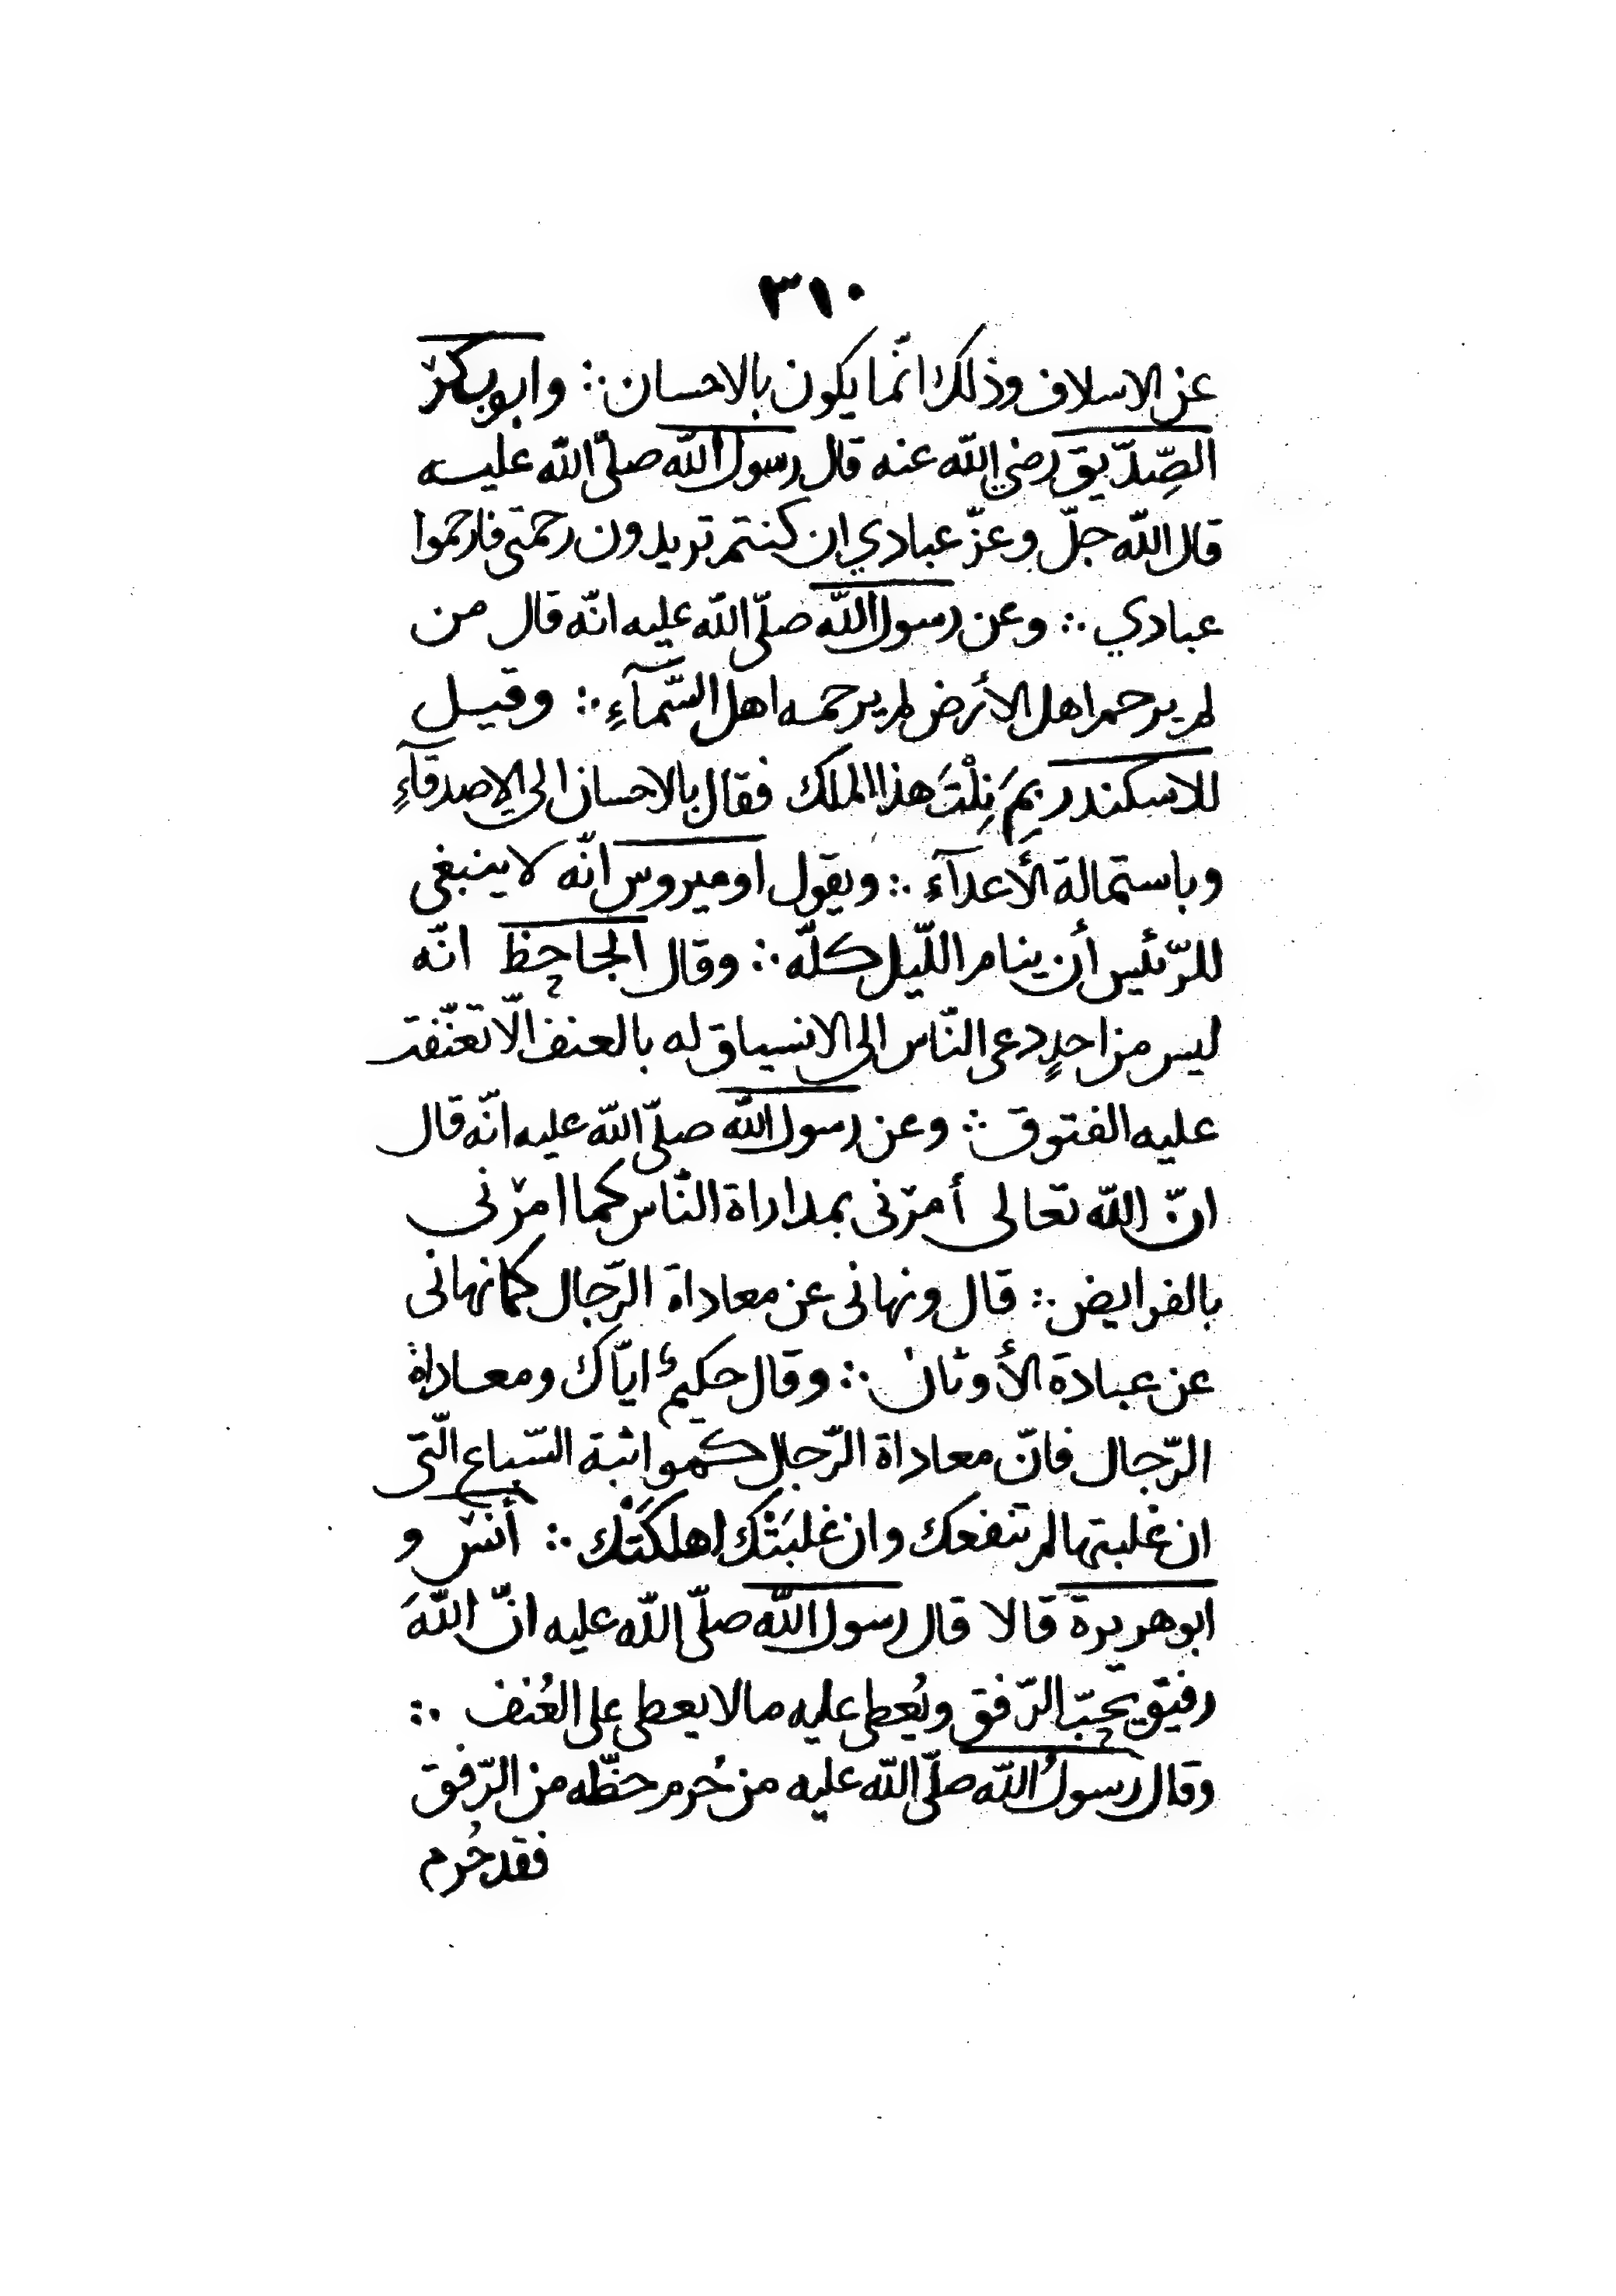 ٣١٠
عن الاسلاف وذلك انّما يكون بالاحسان ∴ وابوبكرٍ
الصِّدّيق رضي الله عنه قال رسول الله صلّى الله عليه
قال الله جلّ وعزّ عبادي ان كنتم تريدون رحمتى فارحموا
عبادي ∴ وعن رسول الله صلّى الله عليه انّه قال من
لم يرحم اهل الأرض لم يرحمه اهل السّمآءِ ∴ وقيل
للاسكندر بِمَ نِلْتَ هذا الملك فقال بالاحسان الى الاصدقآءِ
وباستمالة الأعدآءِ ∴ ويقول اوميروس انّه لا ينبغى
للرّئيس أن ينام اللّيل كلّه ∴ وقال الجاحظ انّه
ليس من احدٍ دعى النّاس الى الانسياق له بالعنف الّا تعنّفت
عليه الفتوق ∴ وعن رسول الله صلّى الله عليه انّه قال
انّ الله تعالى أمرنى بمداراة النّاس كما امرنى
بالفرايض ∴ قال ونهانى عن معاداة الرّجال كما نهانى
عن عبادة الأوثان ∴ وقال حكيمٌ ايّاك ومعاداة
الرّجال فانّ معاداة الرّجال كمواثبة السّباع الّتى
ان غلبتها لم تنفعك وان غلبَتْك اهلكَتْك ∴ أنس و
ابوهريرة قالا قال رسول الله صلّى الله عليه انّ اللهَ
رفيق يحبّ الرّفق ويُعطى عليه ما لا يعطى على العُنف ∴
وقال رسولُ الله صلّى الله عليه من حُرم حظّه من الرّفق
فقد حُرم